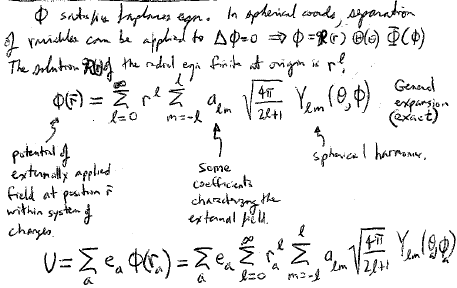 Φ satisfies Laplaces eqn. In spherical coords, separation
of variables can be applied to ΔΦ=0 ⇒ Φ=R(r) Θ(θ) Φ(ϕ)
The solution R(r) of the radial eqn finite at origin is r^l.
ϕ(r̄) = ∑_{l=0}^{∞} r^l ∑_{m=-l}^{l} a_{lm} √(4π/(2l+1)) Y_{lm}(θ,ϕ)
General
expansion
(exact)
potential of
externally applied
field at position r̄
within system of
charges.
Some
coefficients
characterizing the
external field.
spherical harmonics.
U = ∑_a e_a ϕ(r̄_a) = ∑_a e_a ∑_{l=0}^{∞} r_a^l ∑_{m=-l}^{l} a_{lm} √(4π/(2l+1)) Y_{lm}(θ_a,ϕ_a)